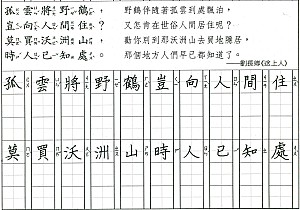 孤雲將野鶴，
豈向人間住？
莫買沃洲山，
時人已知處。
野鶴伴隨著孤雲到處飄泊，
又怎肯在世俗人間居住呢？
勸你別到那沃洲山去買地隱居，
那個地方人們早已都知道了。
──劉長卿《送上人》
孤雲將野鶴豈向人間住
莫買沃洲山時人已知處